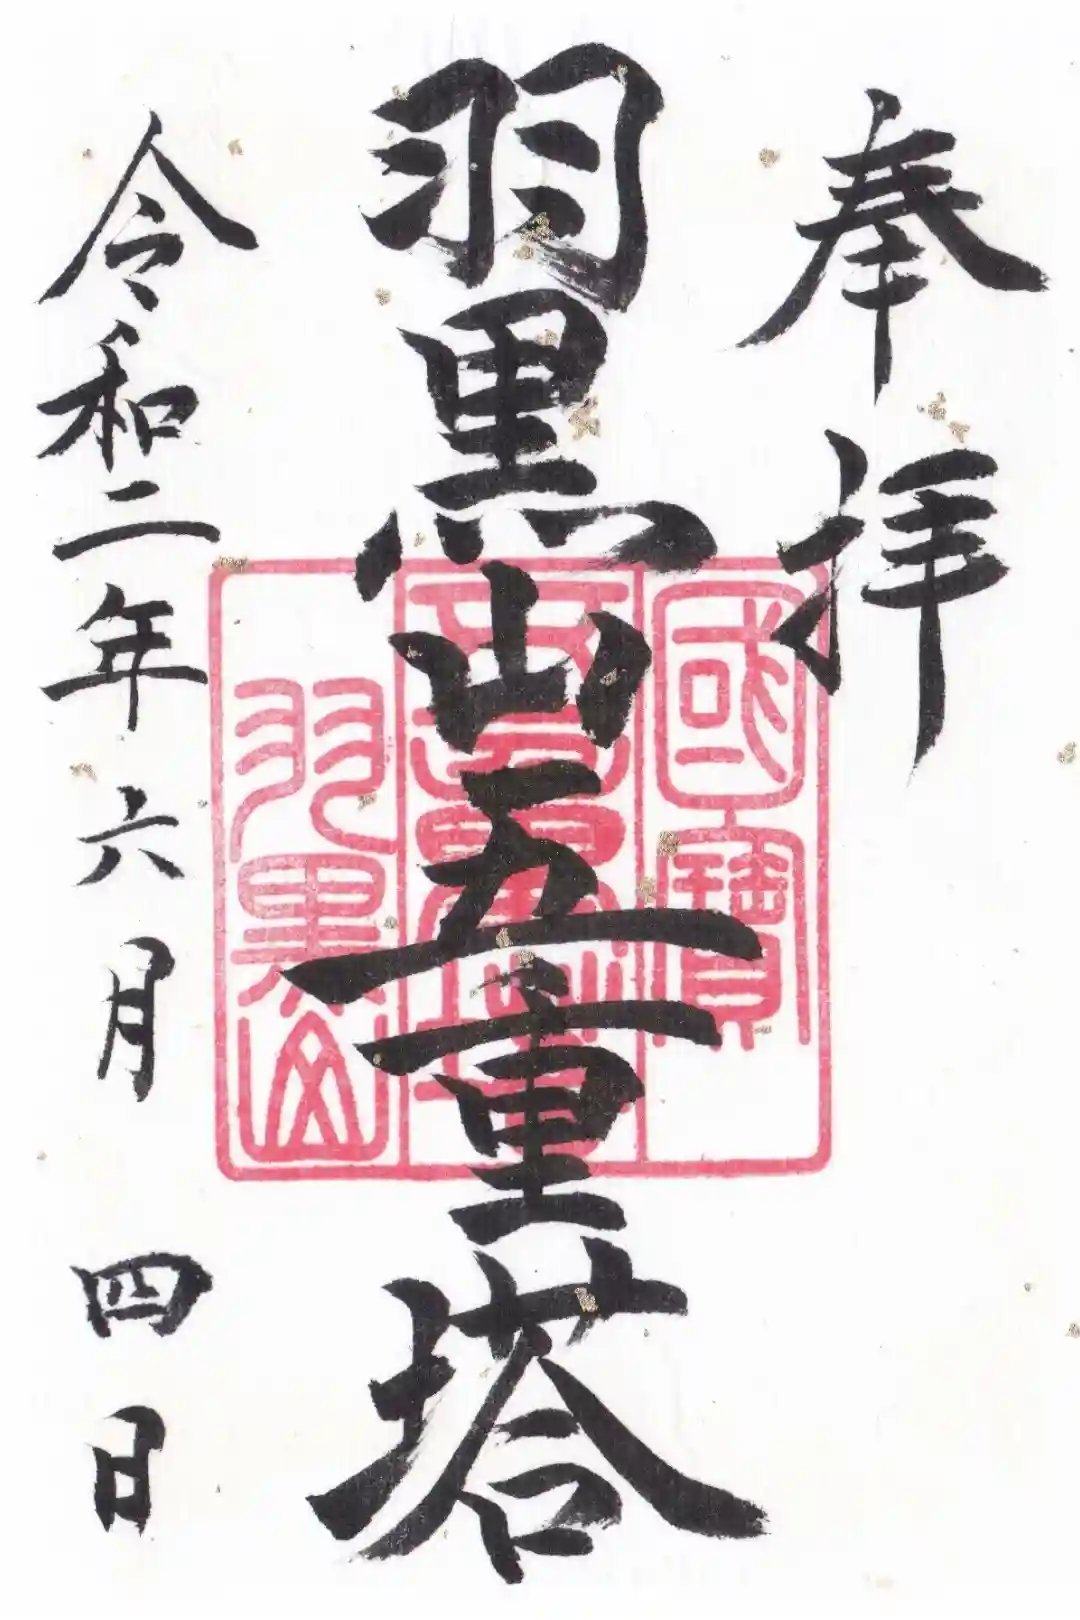 奉拝
羽黒山五重塔
令和二年六月四日
國寳
五重塔
羽黒山